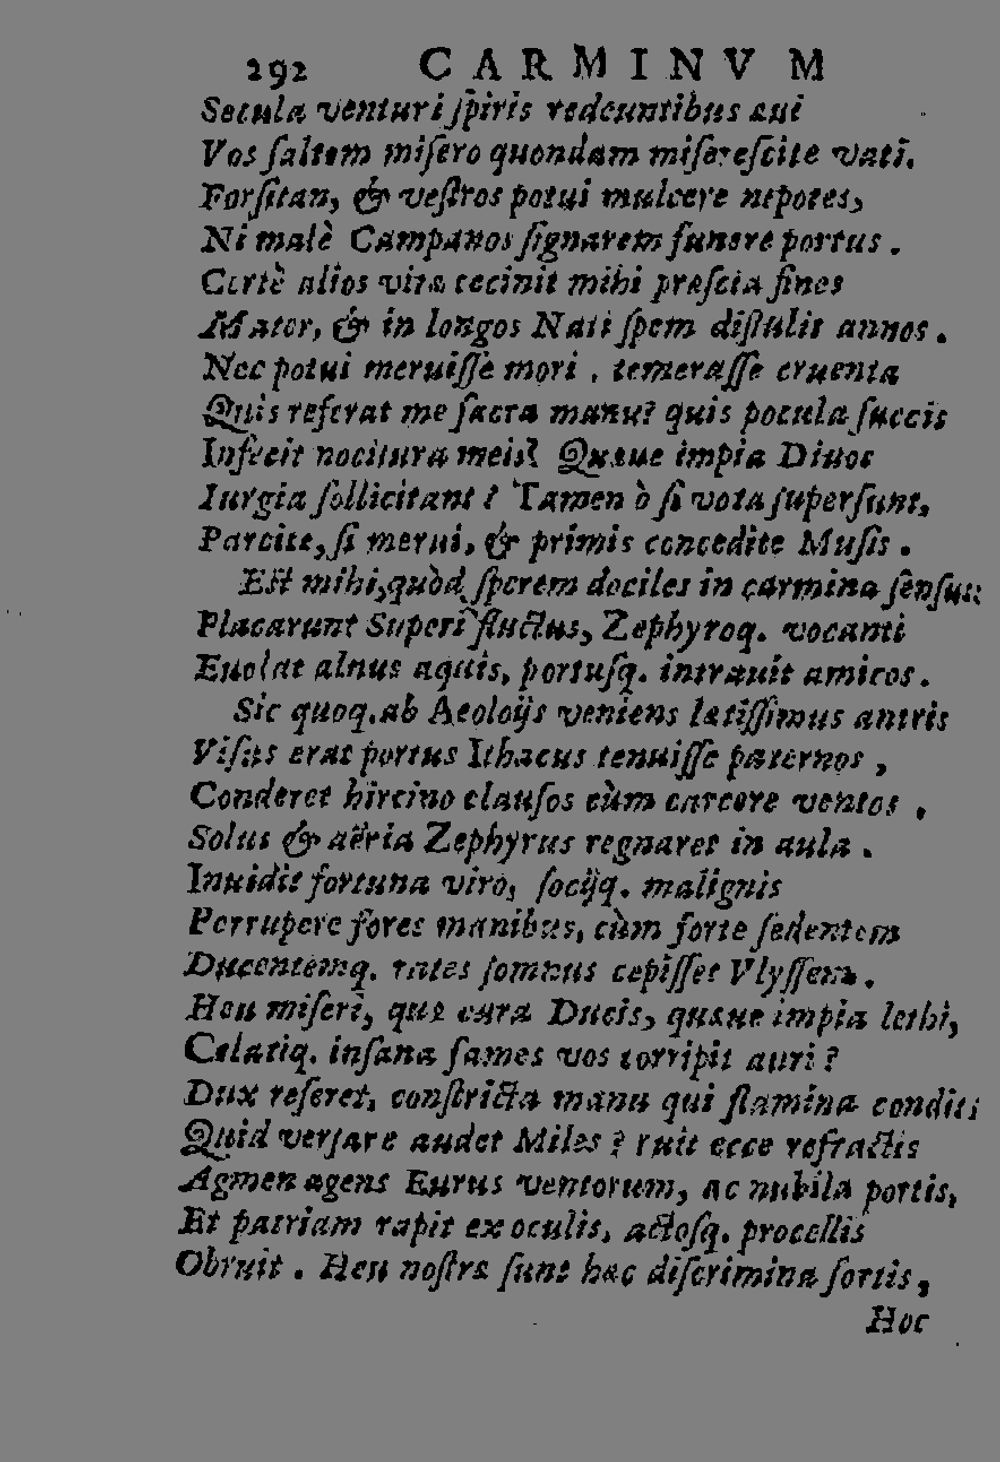 292 CARMINVM
Secula venturi ſpiris redeuntibus æui
Vos ſaltem miſero quondam miſereſcite vati.
Forſitan, & veſtros potui mulcere nepotes,
Ni malè Campanos ſignarem funere portus.
Certè alios vitæ cecinit mihi præſcia fines
Mater, & in longos Nati ſpem diſtulit annos.
Nec potui meruiſſe mori, temeraſſe cruenta
Quis referat me ſacra manu? quis pocula ſuccis
Infecit nocitura meis? Quæue impia Diuos
Iurgia ſollicitant? Tamen ò ſi vota ſuperſunt,
Parcite, ſi merui, & primis concedite Muſis.
Eſt mihi, quòd ſperem dociles in carmina ſenſus:
Placarunt Superi fluctus, Zephyroq. vocanti
Euolat alnus aquis, portuſq. intrauit amicos.
Sic quoq. ab Aeolijs veniens lætiſſimus antris
Viſus erat portus Ithacus tenuiſſe paternos,
Conderet hircino clauſos cùm carcere ventos,
Solus & aëria Zephyrus regnaret in aula.
Inuidit fortuna viro, ſocijq. malignis
Perrupere fores manibus, cùm forte ſedentem
Ducentemq. rates ſomnus cepiſſet Vlyſſem.
Heu miſeri, quæ cura Ducis, quæue impia lethi,
Celatiq. inſana fames vos corripit auri?
Dux reſeret, conſtricta manu qui flamina condit:
Quid verſare audet Miles? ruit ecce refractis
Agmen agens Eurus ventorum, ac nubila portis,
Et patriam rapit ex oculis, actoſq. procellis
Obruit. Heu noſtræ ſunt hæc diſcrimina ſortis,
Hoc